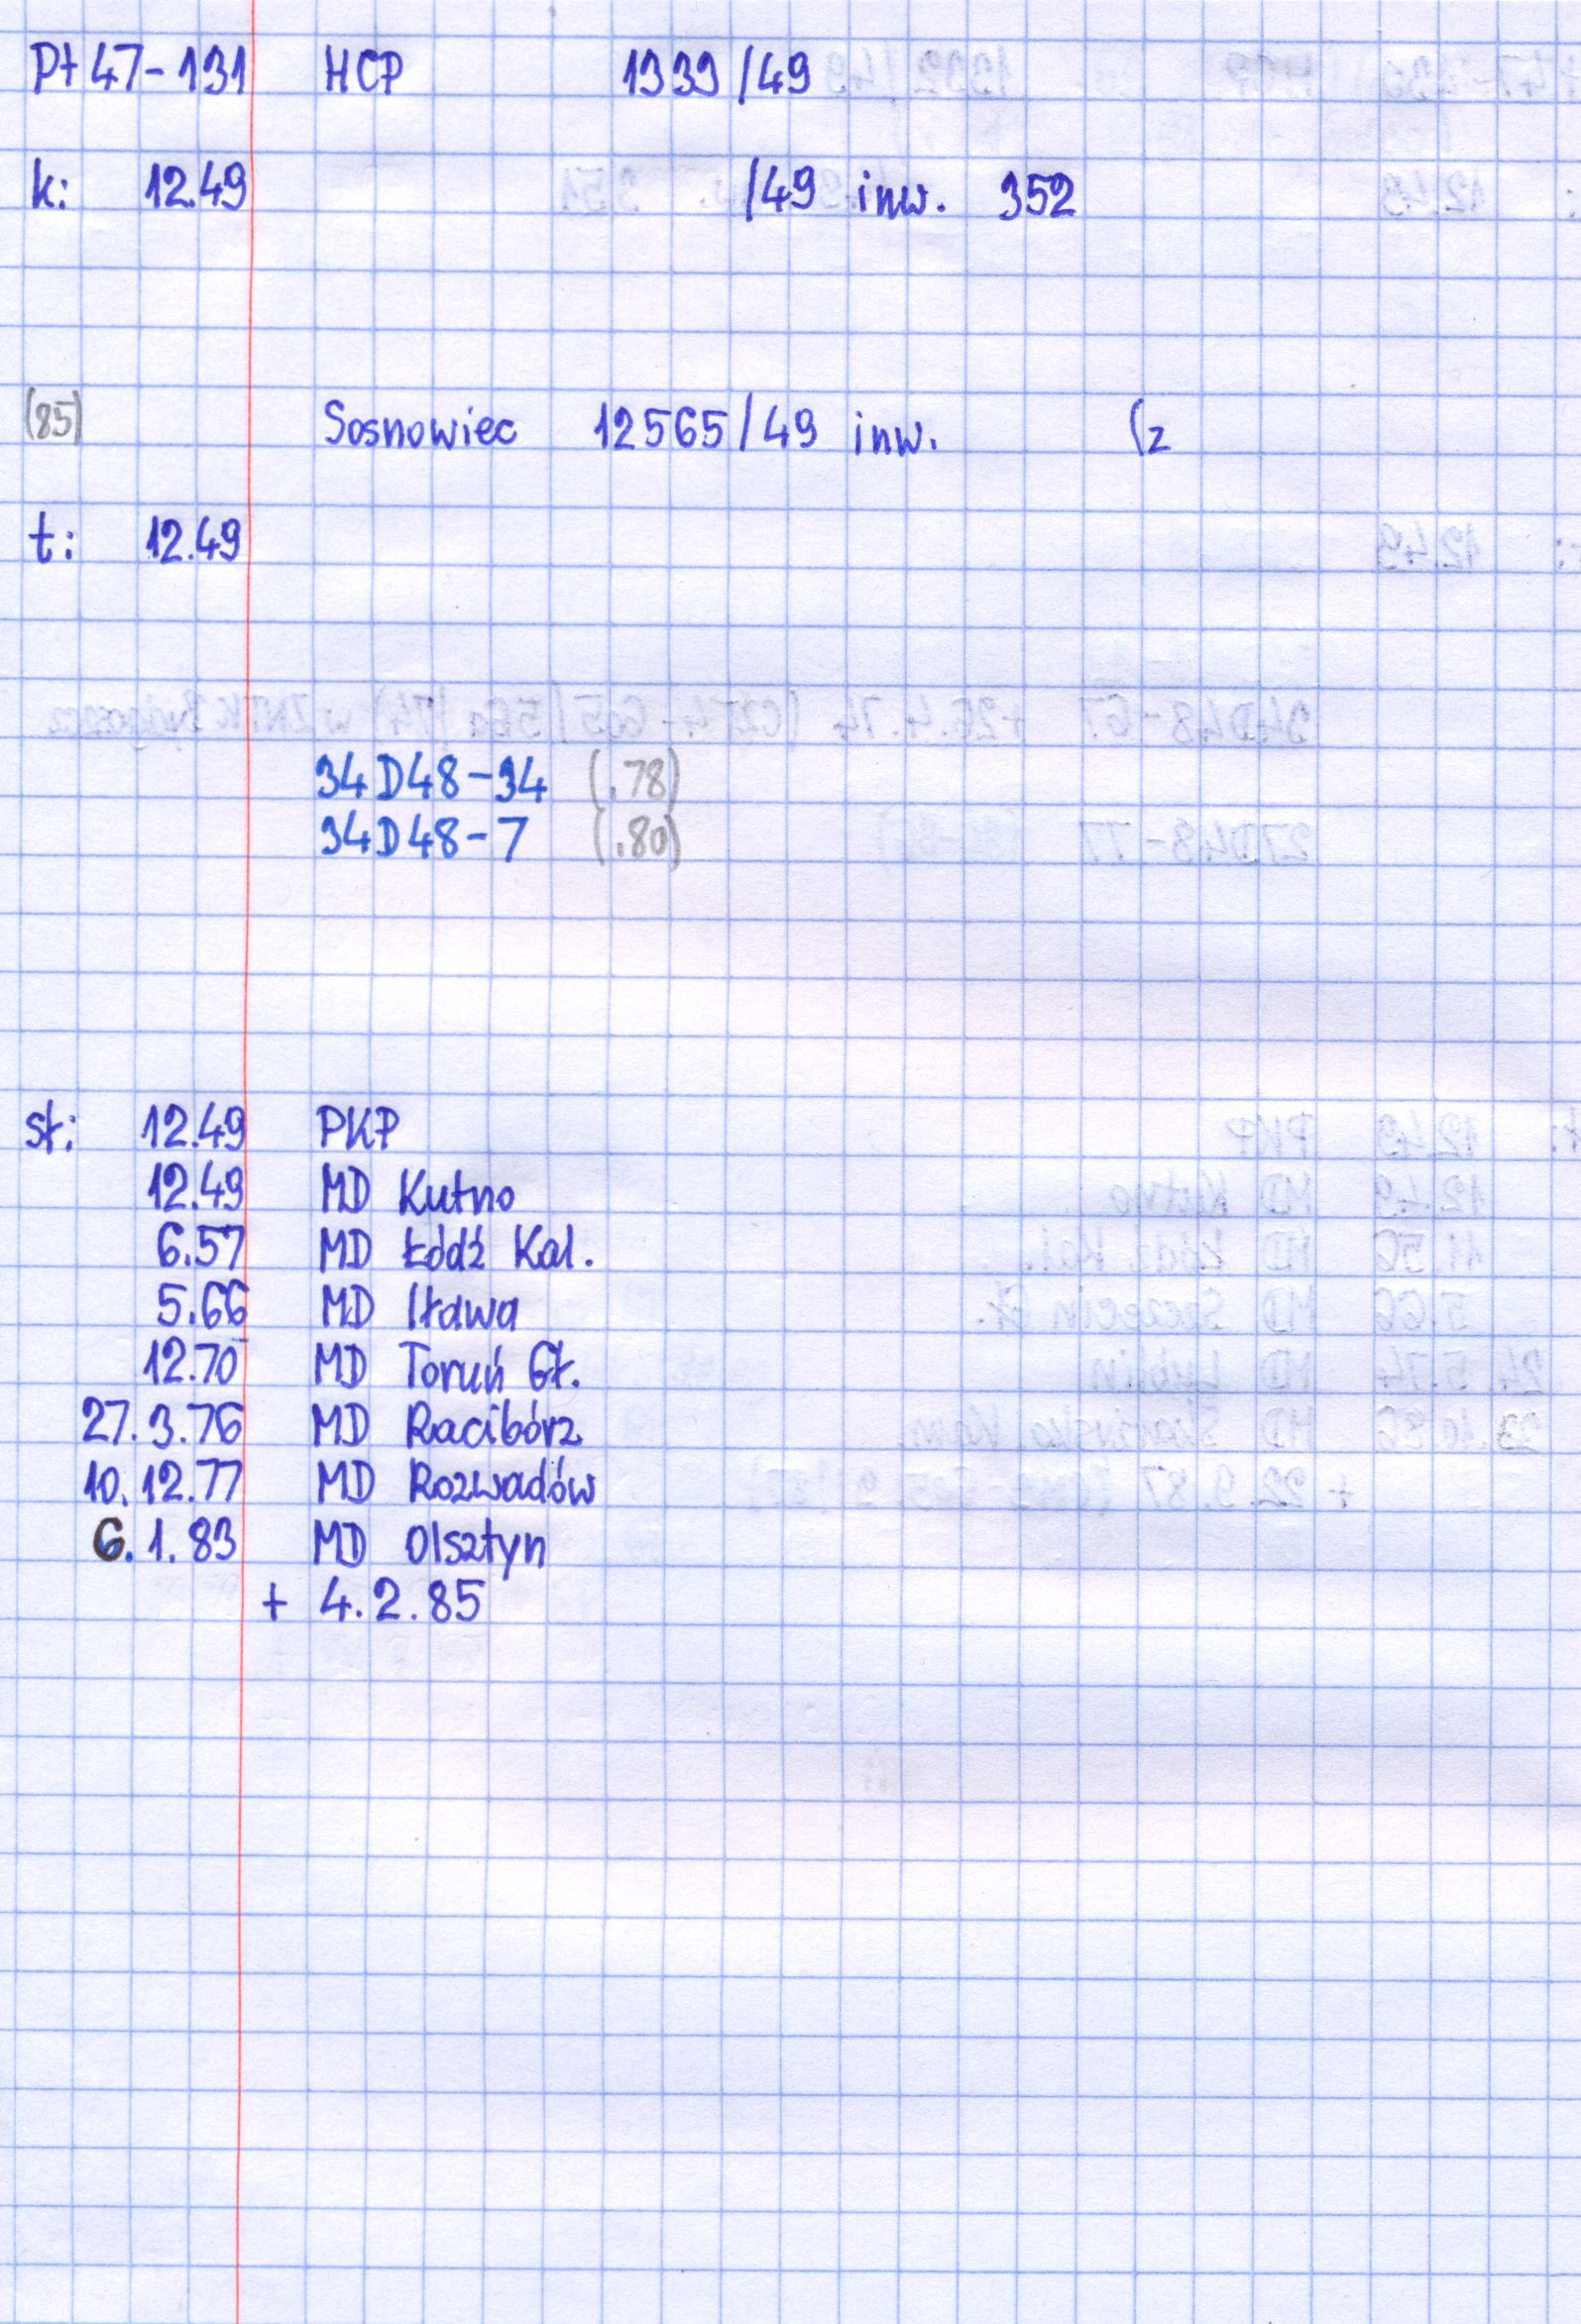 Pt47-131 HCP 1333/49
k: 12.49 /49 inw. 352
(85) Sosnowiec 12565/49 inw. (z
t: 12.49
34D48-34 (.78)
34D48-7 (.80)
sł: 12.49 PKP
12.49 MD Kutno
6.57 MD Łódź Kal.
5.66 MD Iława
12.70 MD Toruń Gł.
27.3.76 MD Racibórz
10.12.77 MD Rozwadów
6.1.83 MD Olsztyn
+ 4.2.85